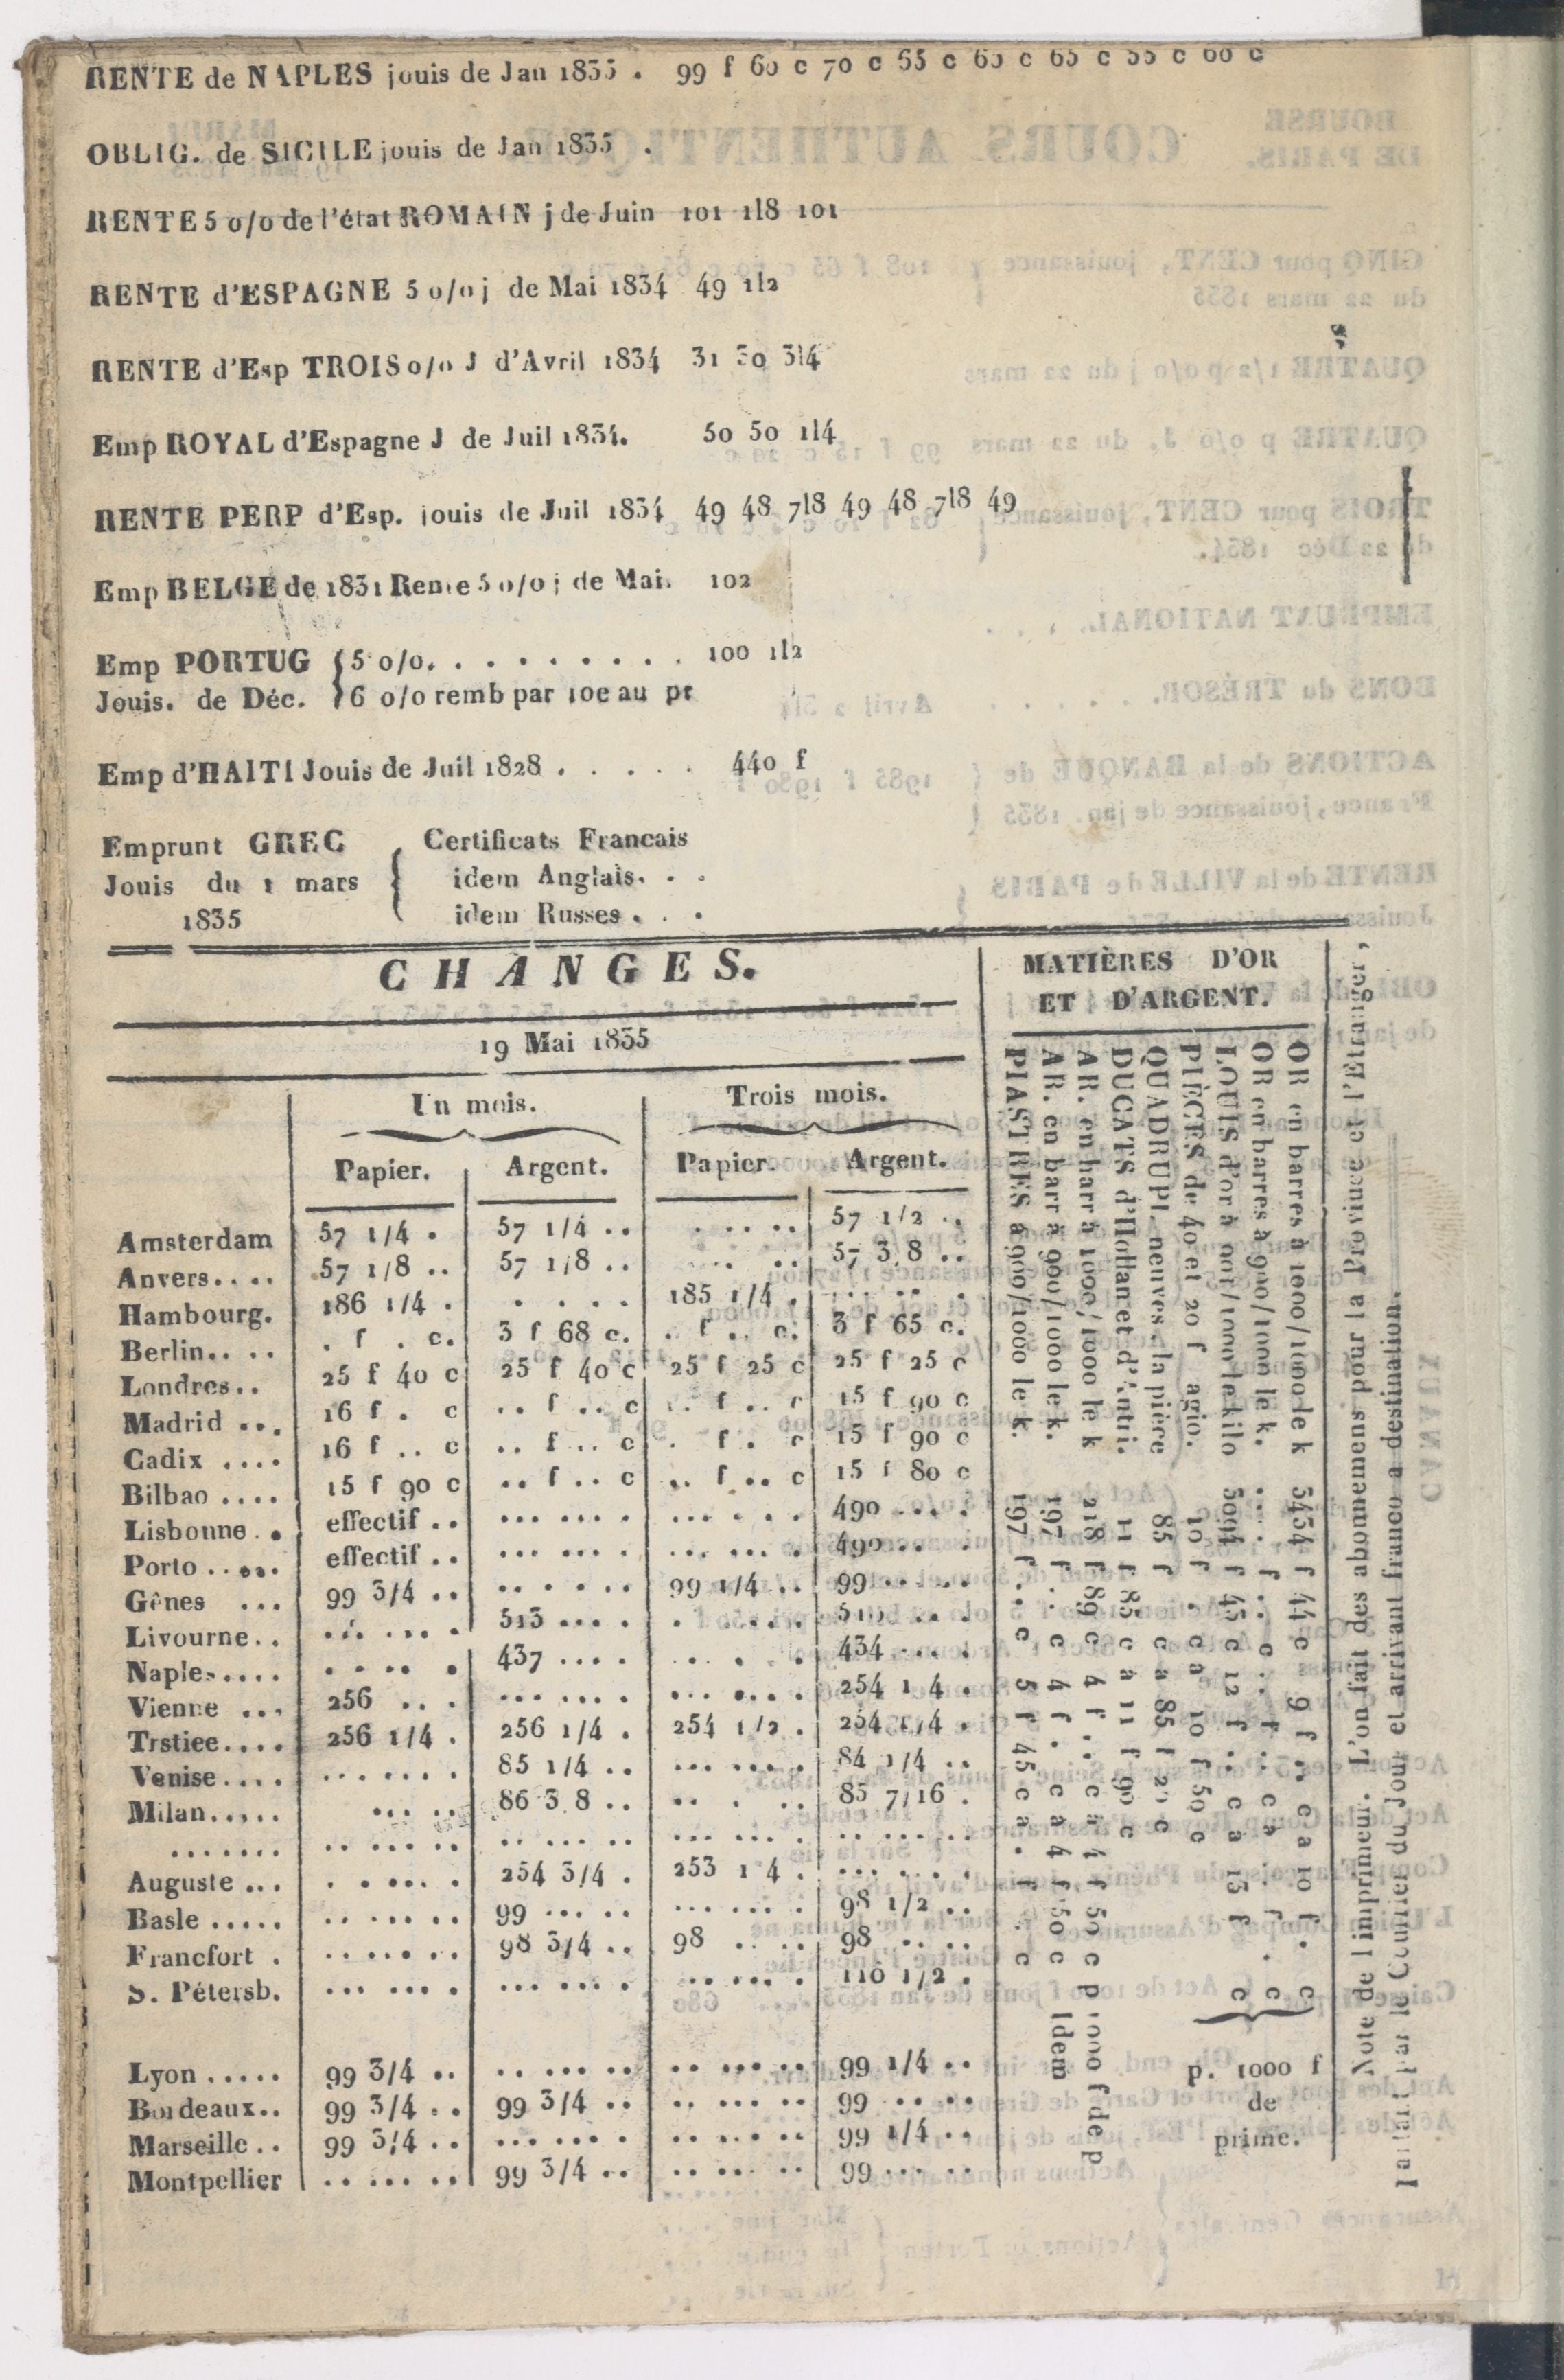 RENTE de NAPLES jouis de Jan 1835 . 99 f 60 c 70 c 65 c 65 c 65 c 55 c 60 c
OBLIG. de SICILE jouis de Jan 1835 .
RENTE 5 o/o de l'état ROMAIN j de Juin 101 1|8 101
RENTE d'ESPAGNE 5 o/o j de Mai 1834 49 1|2
RENTE d'Esp TROIS o/o J d'Avril 1834 31 30 3|4
Emp ROYAL d'Espagne J de Juil 1834. 50 50 1|4
RENTE PERP d'Esp. jouis de Juil 1834 49 48 7|8 49 48 7|8 49
Emp BELGE de 1831 Rente 5 o/o j de Mai. 102
Emp PORTUG { 5 o/o. . . . . . . . . . 100 1|2
Jouis. de Déc. { 6 o/o remb par 10e au pr
Emp d'HAITI Jouis de Juil 1828 . . . . . 440 f
Emprunt GREC { Certificats Francais
Jouis du 1 mars idem Anglais. . .
1835 idem Russes . . .
CHANGES.
19 Mai 1835
Un mois. Trois mois.
Papier. Argent. Papier. Argent.
Amsterdam 57 1/4 . 57 1/4 .. . ... .. 57 1/2 ..
Anvers.... 57 1/8 .. 57 1/8 .. ... .. 57 3 8 ..
Hambourg. 186 1/4 . . . . . 185 1/4 . ... .. .
Berlin.. .. . f . c. 3 f 68 c. . f .. c. 3 f 65 c.
Londres.. 25 f 40 c 25 f 40 c 25 f 25 c 25 f 25 c
Madrid ... 16 f . c .. f .. c .. f .. c 15 f 90 c
Cadix .... 16 f .. c .. f .. c . f . c 15 f 90 c
Bilbao .... 15 f 90 c .. f .. c .. f .. c 15 f 80 c
Lisbonne . . effectif .. ... ... . ... .. . 490 ... .
Porto ..... effectif .. ... ... . ... ... . 490 .. .
Gênes ... 99 3/4 .. .. . . .. 99 1/4 .. 99 ... ..
Livourne.. ... ... . 513 ... . . ... .
Naples.... . . .. . 437 .... ... . . 434 ... .
Vienne ... 256 .. . ... ... . ... ... . 254 1 4 .
Trstiee.... 256 1/4 . 256 1/4 . 254 1/2 . 254 1/4 .
Venise.... ... ... . 85 1/4 .. ... ... . 84 1/4 ..
Milan..... ... .. 86 3 8 .. .. . .. 85 7/16 .
....... .. ... .. .. ... .. ... ... . .. ... ..
Auguste ... . . ... . 254 3/4 . 253 1 4 . ... .. .
Basle ..... .. ... .. 99 ... .. ... ... . 98 1/2 ..
Francfort . .. ... .. 98 3/4 .. 98 .. .. 98 .. ..
S. Pétersb. ... ... . ... ... . ... ... . 110 1/2 .
Lyon ..... 99 3/4 .. .. ... .. .. ... .. 99 1/4 ..
Bordeaux.. 99 3/4 .. 99 3/4 .. .. ... .. 99 .. ..
Marseille .. 99 3/4 .. ... ... . .. ... .. 99 1/4 ..
Montpellier .. ... .. 99 3/4 .. .. ... .. 99 ... ..
MATIÈRES D'OR
ET D'ARGENT.
OR en barres à 1000/1000 le k 3434 f 44 c 9 f .. c a 10 f . c
OR en barres à 900/1000 le k. .... f .. c .. f .. c a . f . c
LOUIS d'or à 901/1000 le kilo 3094 f 45 c 12 f . c a 13 f c
PIÈCES de 40 et 20 f agio. 10 f . c a 10 f 50 c
QUADRUPL neuves . la pièce 85 f c a 85 f c
DUCATS d'Hollan et d'Autri. 11 f 85 c a 11 f 90 c
AR. en barr à 1000/1000 le k 218 f 89 c 4 f .. c a 4 f 50 c p 1000 f de p
AR. en barr à 900/1000 le k. 197 f . c 4 f . c a 4 f 50 c Idem
PIASTRES à 900/1000 le k. 197 f .. c 5 f 45 c a . f . c
p. 1000 f
de
prime.
Note de l imprimeur. L'on fait des abonnemens pour la Province et l'Etranger,
partant par le Courrier du Jour et arrivant franco a destination.